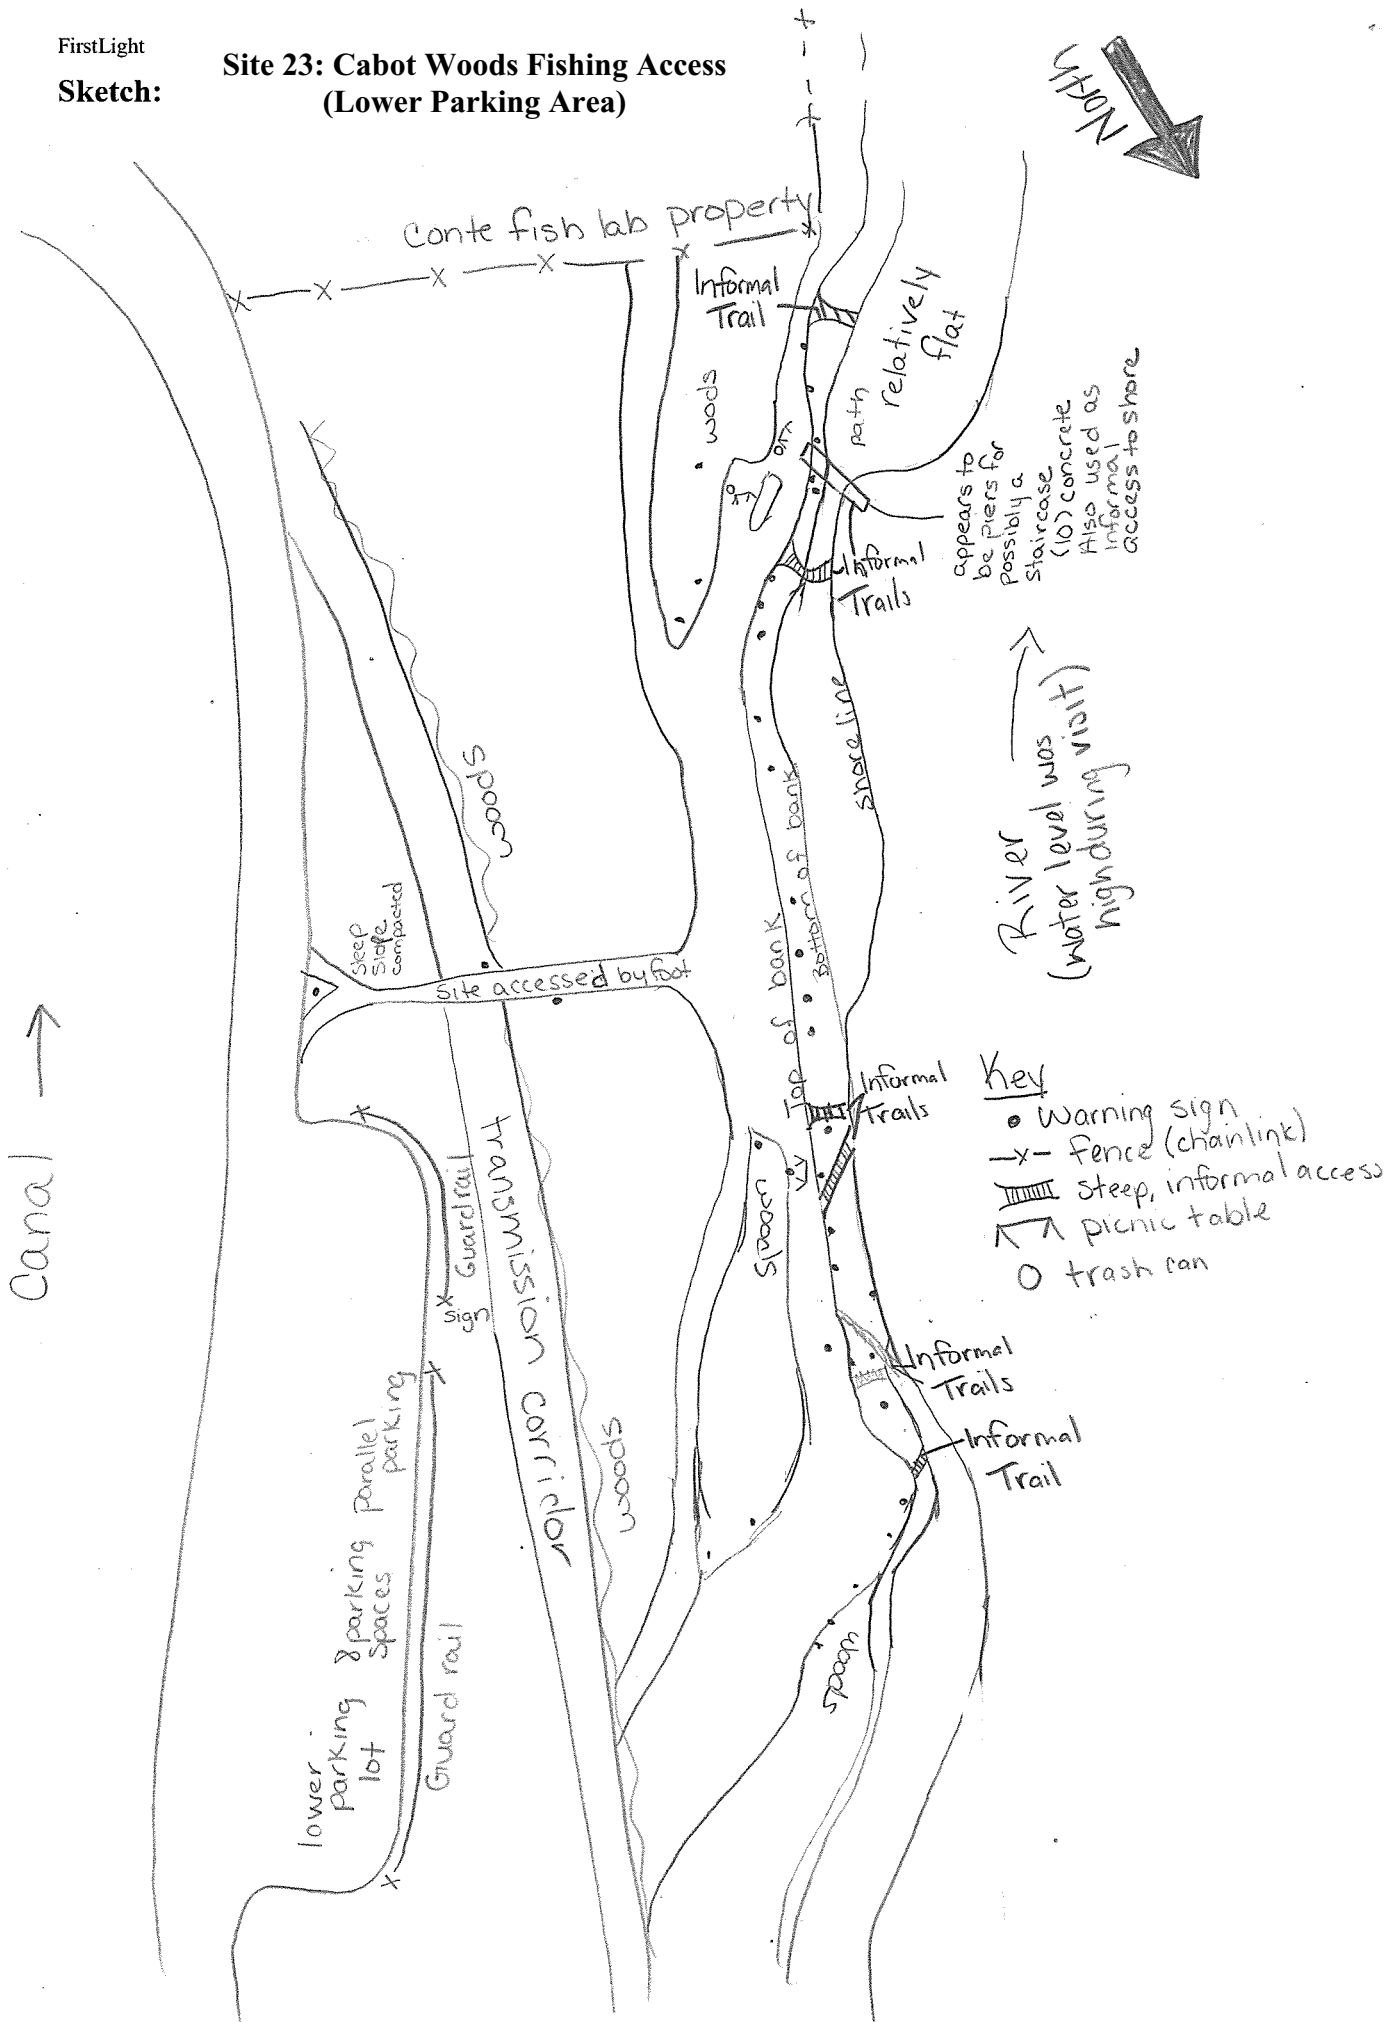 FirstLight
Site 23: Cabot Woods Fishing Access
Sketch:
(Lower Parking Area)
North
Conte fish lab property
Informal
Trail
relatively
flat
woods
path
appears to
be piers for
possibly a
staircase
(10) concrete
Also used as
informal
access to shore
Informal
Trails
shoreline
River
(water level was
high during visit)
woods
Bottom of bank
Top of bank
steep
slope
compacted
site accessed by foot
Canal
Informal
Trails
Key
warning sign
fence (chainlink)
steep, informal access
picnic table
trash can
Guardrail
sign
transmission corridor
woods
Informal
Trails
Informal
Trail
woods
lower
parking
lot
8 parking
spaces
parallel
parking
Guard rail
woods